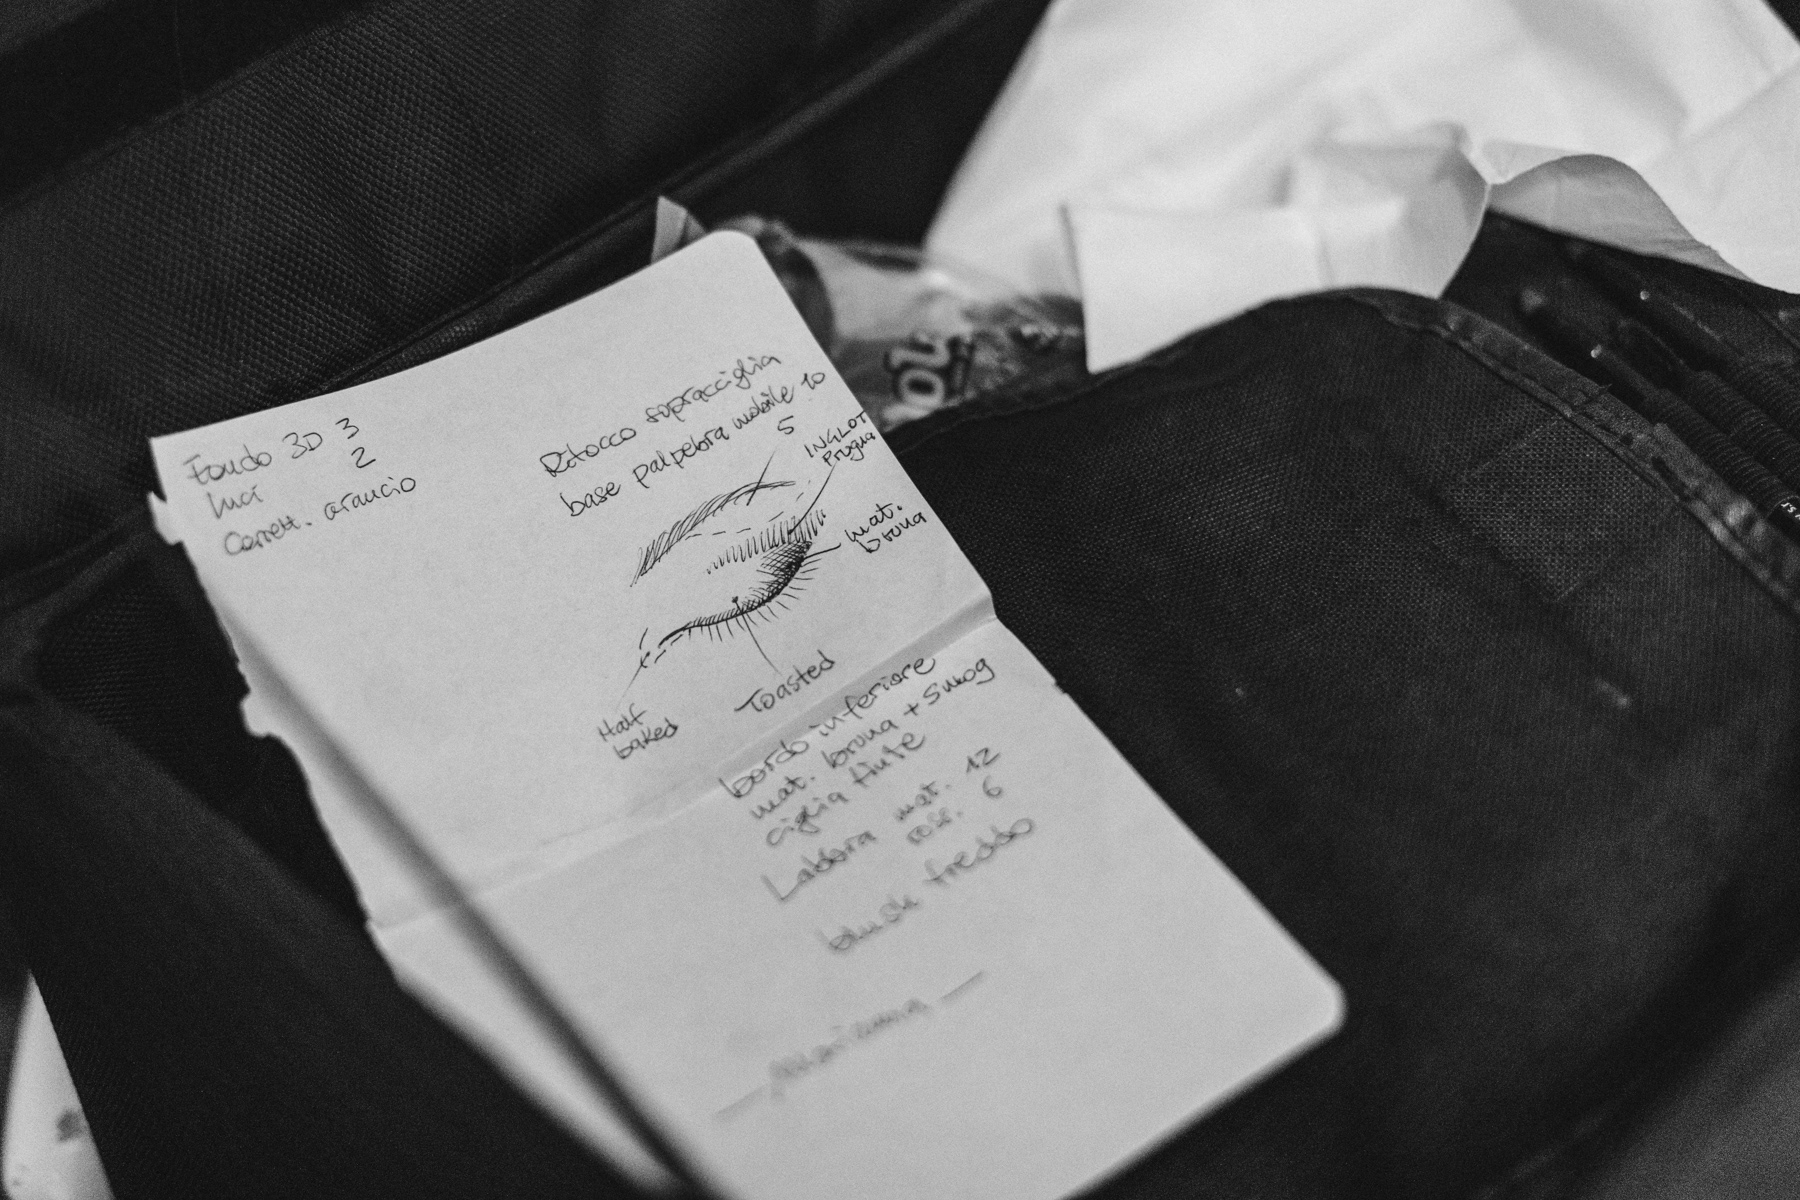 Fondo 3D 3
luci 2
Corrett. arancio
Ritocco sopracciglia
base palpebra mobile 10
5
INGLOT
Prugna
mat.
bruna
Half
baked
Toasted
bordo inferiore
mat. bruna + Smog
ciglia finte
Labbra mat. 12
ross. 6
blush freddo